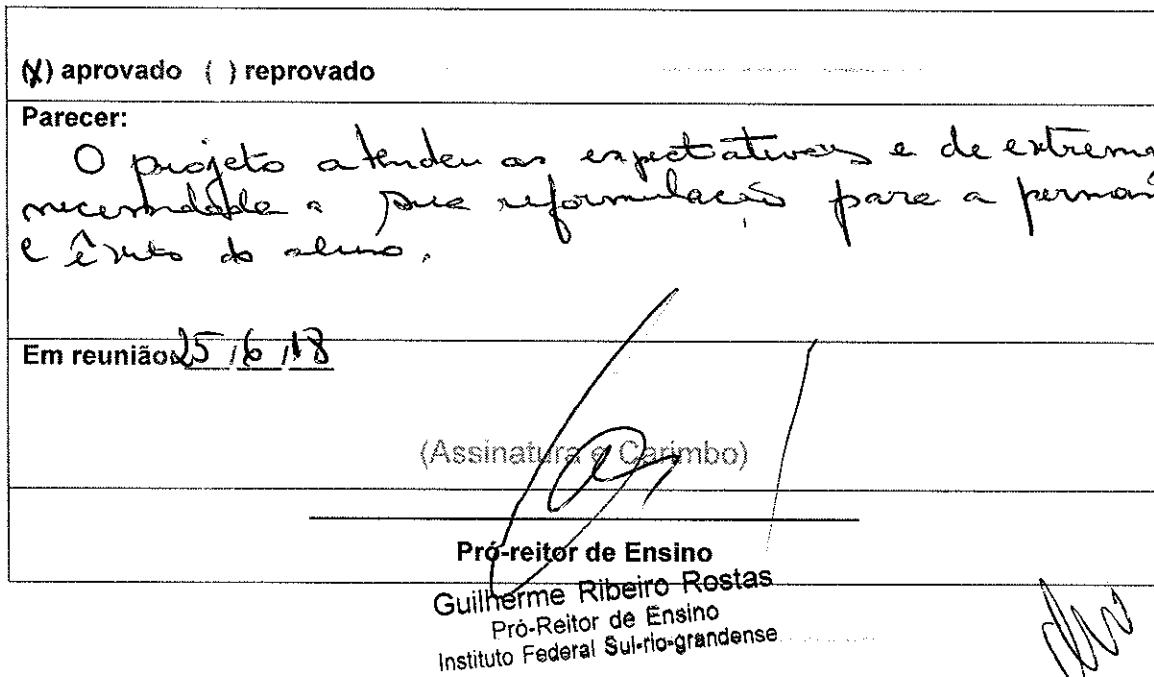 (X) aprovado ( ) reprovado
Parecer:
O projeto atendeu as expectativas e de extrema
necessidade a sua reformulação para a perman
e êxito do aluno.
Em reunião: 25 / 6 / 18
(Assinatura e Carimbo)
Pró-reitor de Ensino
Guilherme Ribeiro Rostas
Pró-Reitor de Ensino
Instituto Federal Sul-rio-grandense